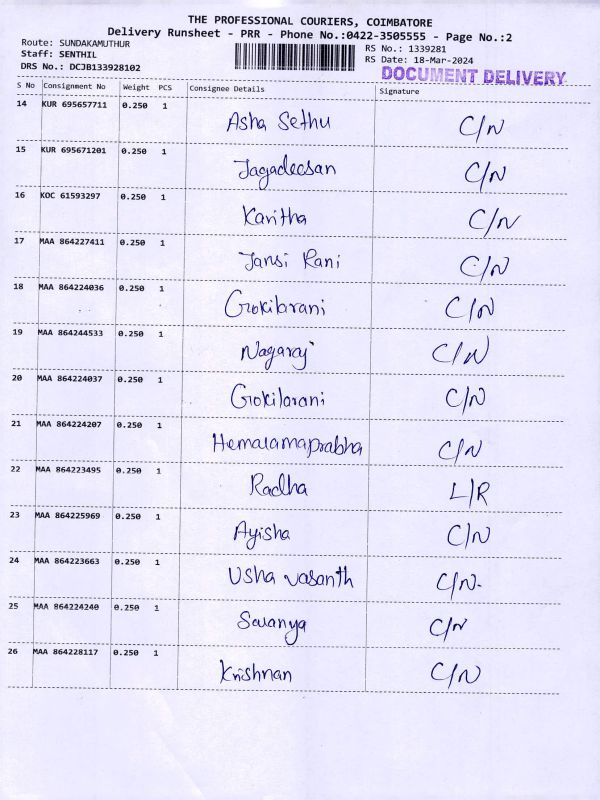 THE PROFESSIONAL COURIERS, COIMBATORE
Delivery Runsheet - PRR - Phone No.:0422-3505555 - Page No.:2
Route: SUNDAKAMUTHUR
Staff: SENTHIL
DRS No.: DCJB133928102
RS No.: 1339281
RS Date: 18-Mar-2024
DOCUMENT DELIVERY
S No Consignment No Weight PCS Consignee Details Signature
14 KUR 695657711 0.250 1 Asha Sethu C/N
15 KUR 695671201 0.250 1 Jagadeesan C/N
16 KOC 61593297 0.250 1 Kavitha C/N
17 MAA 864227411 0.250 1 Jansi Rani C/N
18 MAA 864224036 0.250 1 Gokilarani C/N
19 MAA 864244533 0.250 1 Nagaraj C/N
20 MAA 864224037 0.250 1 Gokilarani C/N
21 MAA 864224207 0.250 1 Hemalamaprabha C/N
22 MAA 864223495 0.250 1 Radha L/R
23 MAA 864225969 0.250 1 Ayisha C/N
24 MAA 864223663 0.250 1 Usha vasanth C/N.
25 MAA 864224240 0.250 1 Saranya C/N
26 MAA 864228117 0.250 1 Krishnan C/N